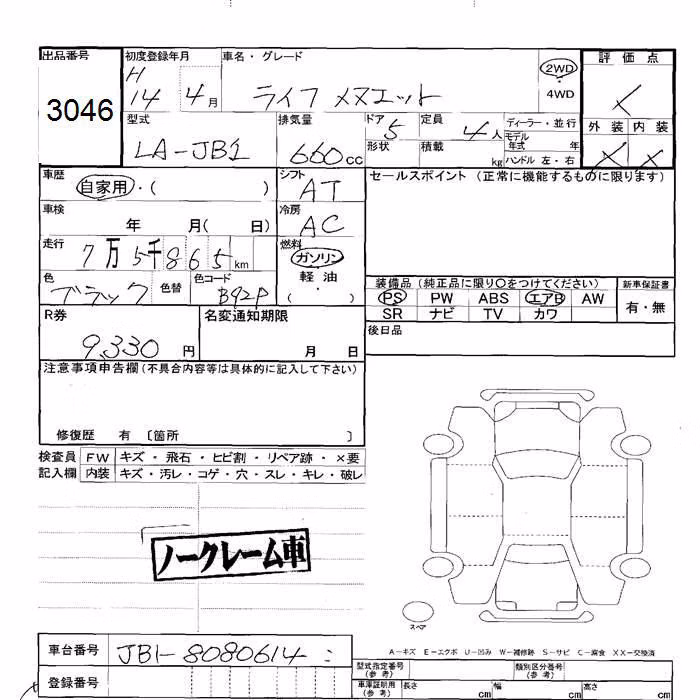 出品番号 初度登録年月 車名・グレード 評価点
3046 H14 4月 ライフ メヌエット 2WD ×
4WD
外装 内装
× ×
型式 排気量 ドア 定員 ディーラー・並行
LA-JB1 660cc 5 4人 モデル年式 年
形状 積載 kg ハンドル 左・右
車歴 シフト セールスポイント (正常に機能するものに限ります)
自家用・( ) AT
車検 冷房
年 月( 日) AC
走行 燃料
7万5千865km ガソリン
軽油
( )
色 色替 色コード
ブラック B92P
装備品 (純正品に限り○をつけてください) 新車保証書
PS PW ABS エアB AW 有・無
SR ナビ TV カワ
R券 名変通知期限 後日品
9,330円 月 日
注意事項申告欄 (不具合内容等は具体的に記入して下さい)
修復歴 有 〔箇所 〕
検査員 FW キズ・飛石・ヒビ割・リペア跡・×要
記入欄 内装 キズ・汚レ・コゲ・穴・スレ・キレ・破レ
ノークレーム車
スペア
A-キズ E-エクボ U-凹み W-補修跡 S-サビ C-腐食 XX-交換済
車台番号 JB1-8080614
登録番号
型式指定番号 (参考) 類別区分番号 (参考)
車庫証明用 (参考) 長さ cm 幅 cm 高さ cm